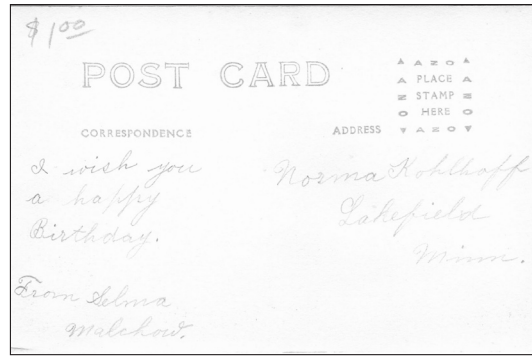 $1.00
POST CARD
AZO
A PLACE A
Z STAMP Z
O HERE O
AZO
CORRESPONDENCE
ADDRESS
I wish you
a happy
Birthday.
From Selma
Malchow.
Norma Kohlhoff
Lakefield
Minn.